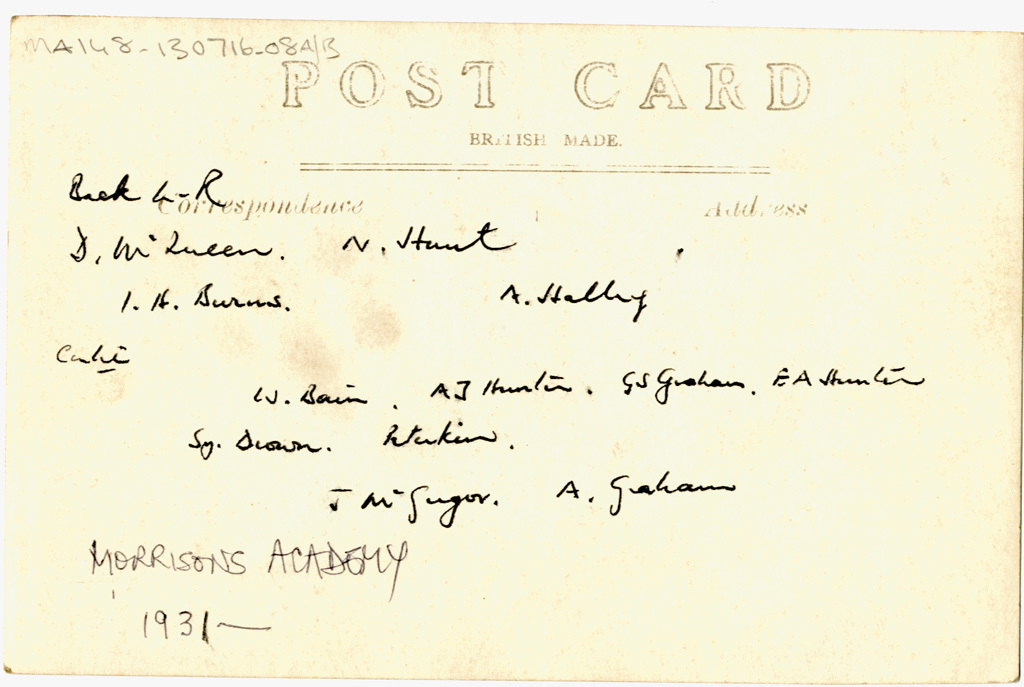 MA148-130716-08A/B
POST CARD
BRITISH MADE.
Back L-R
Correspondence Address
D. McQueen. N. Hunt
I. H. Burns. A. Halley
W. Bain. A J Hunter. G S Graham. E A Hunter
Sy. Brown. Peterkin.
J McGregor. A. Graham
MORRISONS ACADEMY
1931—